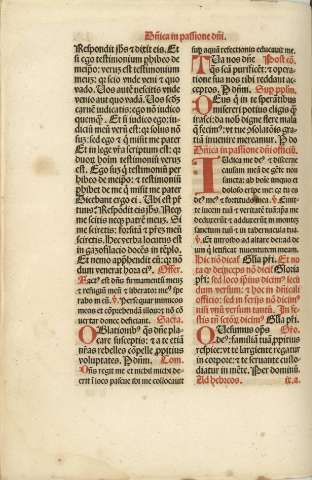 Dñica in passione dñi.
Respondit jhs & dixit eis. Et
si ego testimonium phibeo de
meipo: veruʒ est testimonium
meuʒ: qr scio vnde veni & quo
vado. Uos aut nescitis vnde
venio aut quo vado. Uos scdʒ
carnē iudicatis: ego nō iudico
quemqʒ. Et si iudico ego: iu-
diciū meū verū est: qr solus nō
suʒ: sed ego & qui misit me pater
Et in lege vra scriptum est: qr
duorʒ hoim testimoniū verum
est. Ego suʒ qui testimoniū per
hibeo de meipo: & testimoniū
phibet de me qui misit me pater
Dicebant ergo ei. Ubi est pr
tuus? Respondit eis jhs. Neqʒ
me scitis neqʒ patrē meuʒ. Si
me sciretis: forsitā & prēʒ meū
sciretis. Hec verba locutus est i
gazofilacio docēs in tēplo.
Et nemo apphendit eū: qr nō
dum venerat hora ei⁹. Offer.
Fact⁹ est dñs firmamentū meuʒ
& refugiū meū & liberator me⁹: spe
rabo in eū. v̄. Persequar inimicos
meos & cōprehendā illos: & nō cō
uertar donec deficiant. Sacra.
Oblationib⁹ qs dñe pla-
care susceptis: & a te etiā
nras rebelles cōpelle ppitius
voluptates. P dñm. Com.
Dñs regit me et nichil michi de
erit i loco pascue ibi me collocauit
sup aquā refectionis educauit me.
Tua nos dñe Post cō.
qs scā purificēt: & opera-
tione sua nos tibi reddant ac-
ceptos. P dñm. Sup pplm.
Deus qui in te sperātibus
misereri potius eligis qui
irasci: da nob digne flere mala
que fecim⁹: vt tue ꝯsolatōis gra-
tiā inuenire mereamur. P do
Dñica in passione dñi officiū.
Iudica me de⁹ & discerne
causam meā de gēte non
sancta: ab hoie iniquo et
doloso eripe me: qr tu es
de⁹ me⁹ & fortitudo mea. v̄. Emit-
te lucem tuā & veritatē tuā: ipsa me
deduxerūt & adduxerūt in montē
sanctum tuū & in tabernacula tua.
v̄. Et introibo ad altare dei: ad de-
um qui letificat iuuentutem meam.
Hic nō dicat Gla pri. Et no
ta qr deinceps nō dicat Gloria
pri: sed loco ipsius dicim⁹ sem
dum versum: & hoc in dñicali
officio: sed in ferijs nō dicim⁹
nisi vnū versum tantū. In fe-
stis tñ scorʒ dicim⁹ Gla pri.
Quesumus ops Oro.
de⁹: familiā tuā ppitius
respice: vt te largiente regatur
in corpore: & te seruante custo-
diatur in mēte. Per dominū.
Ad hebreos. ix.a.